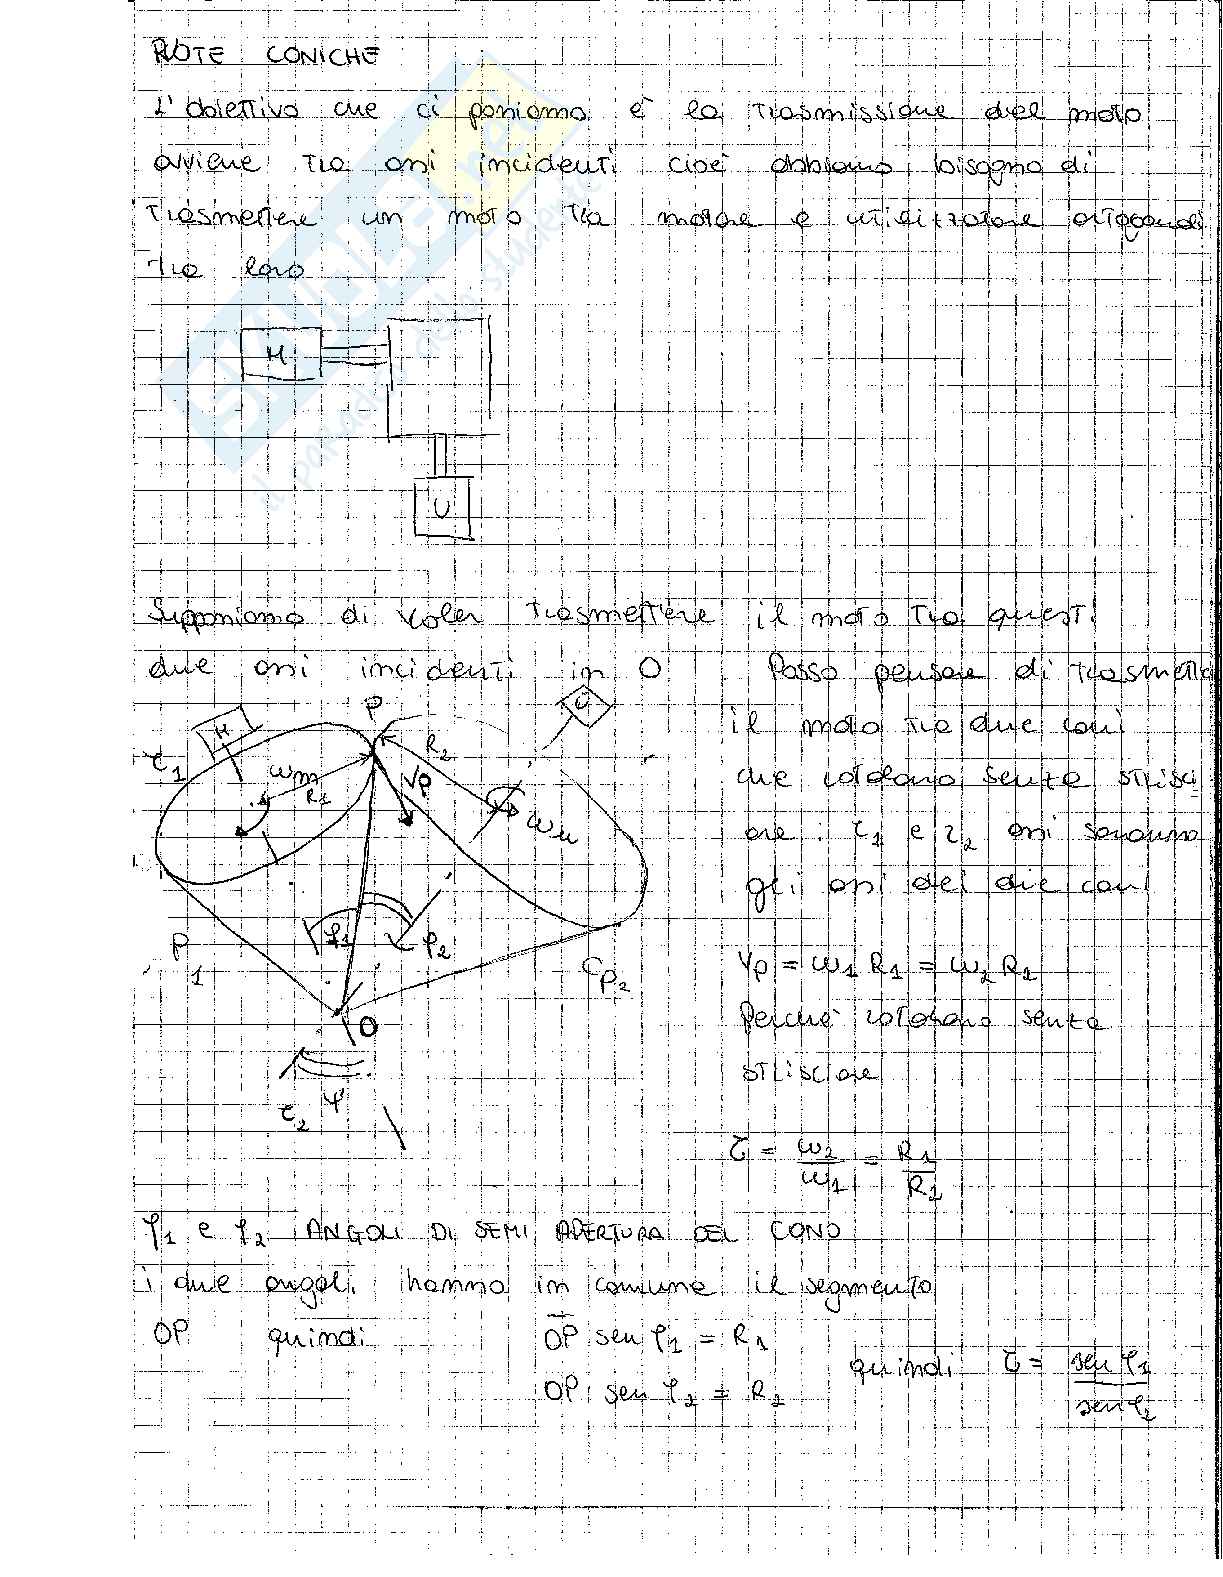 RUOTE CONICHE
L'obiettivo che ci poniamo è la trasmissione del moto
avviene tra assi incidenti cioè abbiamo bisogno di
trasmettere un moto tra motore e utilizzatore ortogonali
tra loro
M
U
Supponiamo di voler trasmettere il moto tra questi
due assi incidenti in O
Posso pensare di trasmette
il moto tra due coni
che rotolano senza strisci
are: r1 e r2 assi saranno
gli assi dei due coni
M
P
U
r1
ωm
R1
R2
Vp
ωu
φ1
φ2
P1
Cp2
O
r2
φ
Vp = ω1 R1 = ω2 R2
Perchè rotolano senza
strisciare
τ = ω2/ω1 = R1/R2
φ1 e φ2 ANGOLI DI SEMI APERTURA DEL CONO
i due angoli hanno in comune il segmento
OP quindi OP sen φ1 = R1
OP sen φ2 = R2
quindi τ = sen φ1/sen φ2